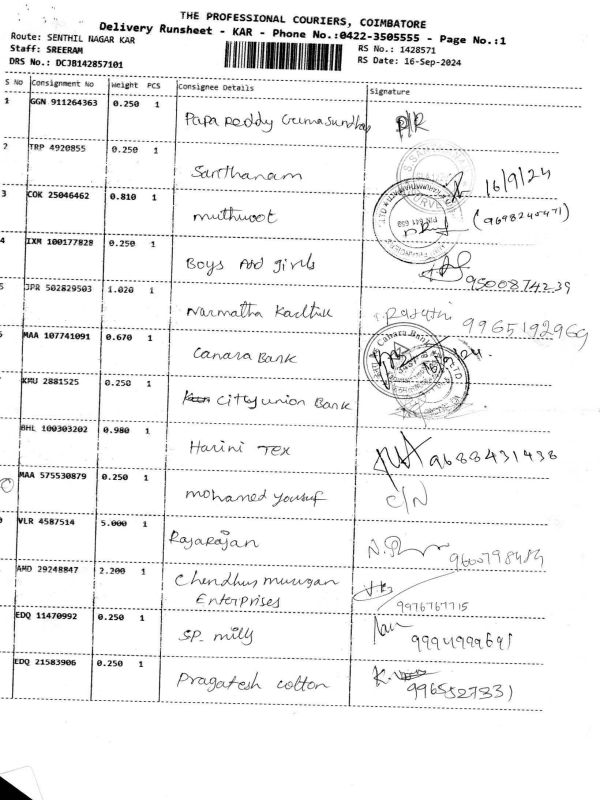 THE PROFESSIONAL COURIERS, COIMBATORE
Delivery Runsheet - KAR - Phone No.:0422-3505555 - Page No.:1
Route: SENTHIL NAGAR KAR
RS No.: 1428571
Staff: SREERAM
RS Date: 16-Sep-2024
DRS No.: DCJB142857101
S No Consignment No Weight PCS Consignee Details Signature
1 GGN 911264363 0.250 1
Papa Reddy P/R
2 TRP 4920855 0.250 1
Santhanam 16/9/24
3 COK 25046462 0.810 1
muthuoot (9698240471)
4 IXM 100177828 0.250 1
Boys And girls 9500874239
5 JPR 502829503 1.020 1
Narmatha Karthik 9965192969
MAA 107741091 0.670 1
Canara Bank
KMU 2881525 0.250 1
Citty union Bank
BHL 100303202 0.980 1
Harini Tex 9688431438
MAA 575530879 0.250 1
mohamed yousuf C/N
VLR 4587514 5.000 1
Rajarajan 9600798484
AMD 29248847 2.200 1
Chendhur murugan
Enterprises
9976767715
EDQ 11470992 0.250 1
SP. mills 9994999691
EDQ 21583906 0.250 1
Pragatesh cotton 9965527331